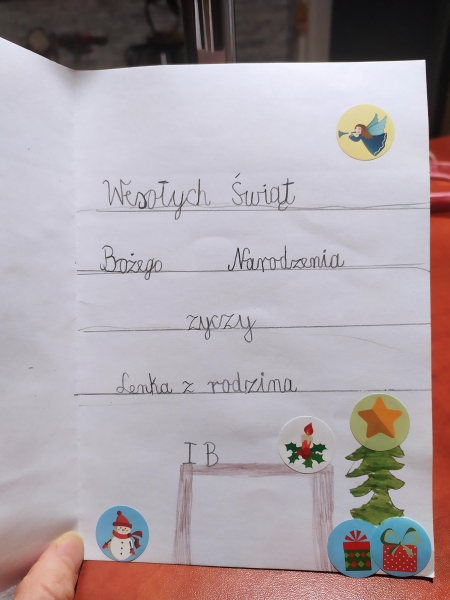 Wesołych Świąt
Bożego Narodzenia
życzy
Lenka z rodzina
I B